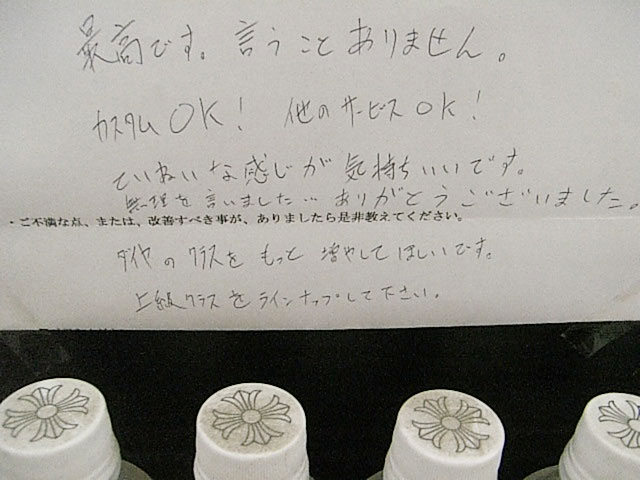 最高です。言うことありません。
カスタムOK! 他のサービスOK!
ていねいな感じが気持ちいいです。
無理を言いました… ありがとうございました。
・ご不満な点、または、改善すべき事が、ありましたら是非教えてください。
ダイヤのクラスをもっと増やしてほしいです。
上級クラスをラインナップして下さい。